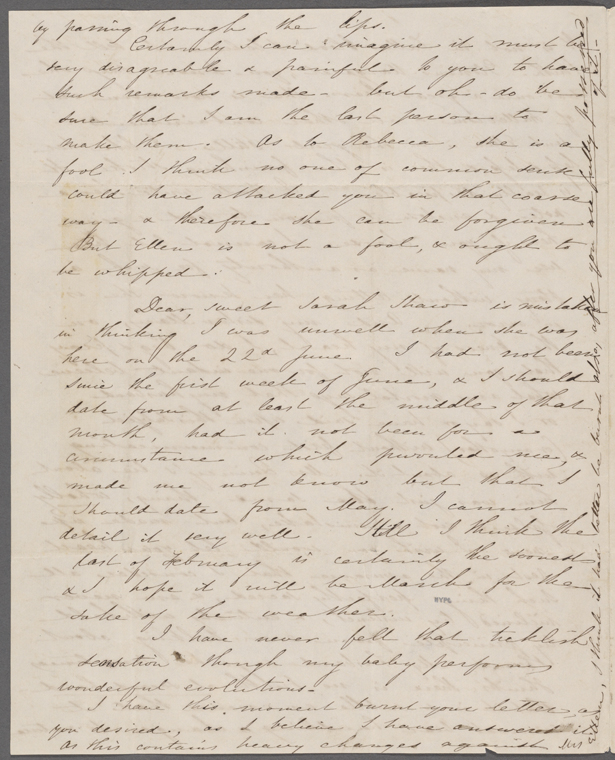 by passing through the lips.
Certainly I can imagine it must be
very disagreable & painful to you to have
such remarks made - but oh - do be
sure that I am the last person to
make them. As to Rebecca, she is a
fool. I think no one of common sense
could have attacked you in that coarse
way - & therefore she can be forgiven
But Ellen is not a fool, & ought to
be whipped.
Dear, sweet Sarah Shaw is mistaken
in thinking I was unwell when she was
here on the 22d June. I had not been
since the first week of June, & I should
date from at least the middle of that
month, had it not been for a
circumstance which prevented me, &
made me not know but that I
should date from May. I cannot
detail it very well. Still I think the
last of February is certainly the soonest
& I hope it will be March for the
sake of the weather.
NYPL
I have never felt that ticklish
sensation though my baby performs
wonderful evolutions.
I have this moment burnt your letter, as
you desired, as I believe I have answered it
As this contains heavy changes against
Ellen, I think it had better be burnt also, after you are fully possessed
of it -